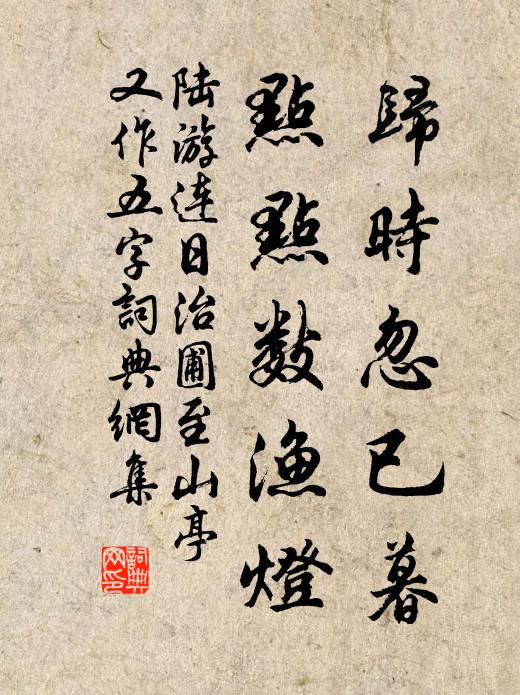 歸時忽已暮
點點數漁燈
陆游连日治圃至山亭
又作五字詞典網集
詞典網印